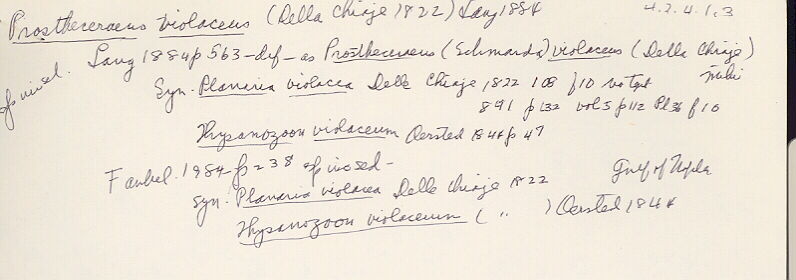 Prostheceraeus violaceus (Della Chiaje 1822) Lang 1884 4.2.4.1.3
sp incsed.
Lang 1884 p 563 - def - as Prostheceraeus (Schmarda) violaceus (Delle Chiaje)
Syn. Planaria violacea Delle Chiaje 1822 108 f10
891 p132 vol 5 p112 Pl 36 f10
Thysanozoon violaceum Oersted 1844 p 47
Faubel 1984 p 238 sp incsed -
Gulf of Naples
Syn. Planaria violacea Delle Chiaje 1822
Thysanozoon violaceum ( " ) Oersted 1844